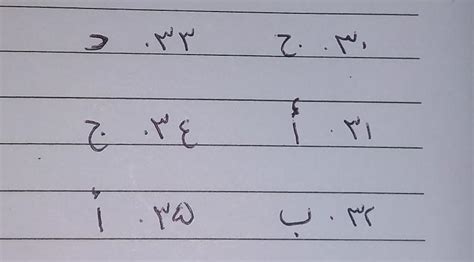 ٣٠. ج ٣٣. د
٣١. أ ٣٤. ج
٣٢. ب ٣٥. أ